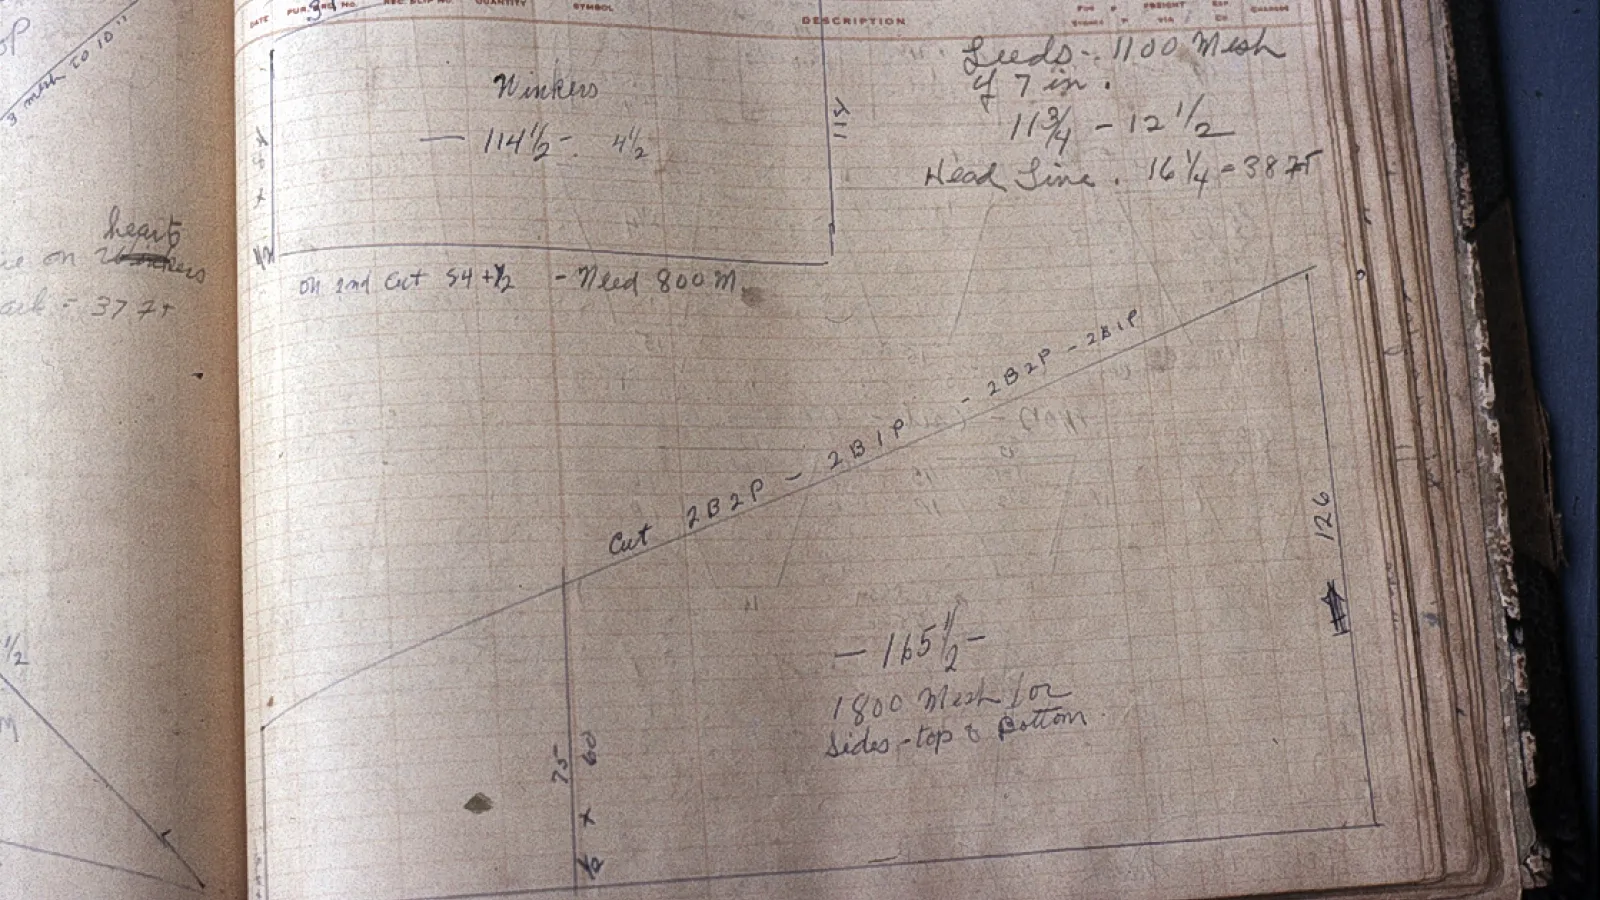 3 mesh to 10"
hearts
on Winkers
37 7+
1/2
M
DATE
QUANTITY
SYMBOL
DESCRIPTION
FREIGHT
VIA
Winkers
— 114 1/2 - 4 1/2
115
On 2nd Cut 54 + 1/2 - Need 800 M.
Leeds - 1100 Mesh
of 7 in.
11 3/4 - 12 1/2
Head Line. 16 1/4 =
Cut 2B2P - 2B1P - 2B2P - 2B1P
126
— 165 1/2 —
1800 Mesh for
Sides - top & Bottom
75
60 x